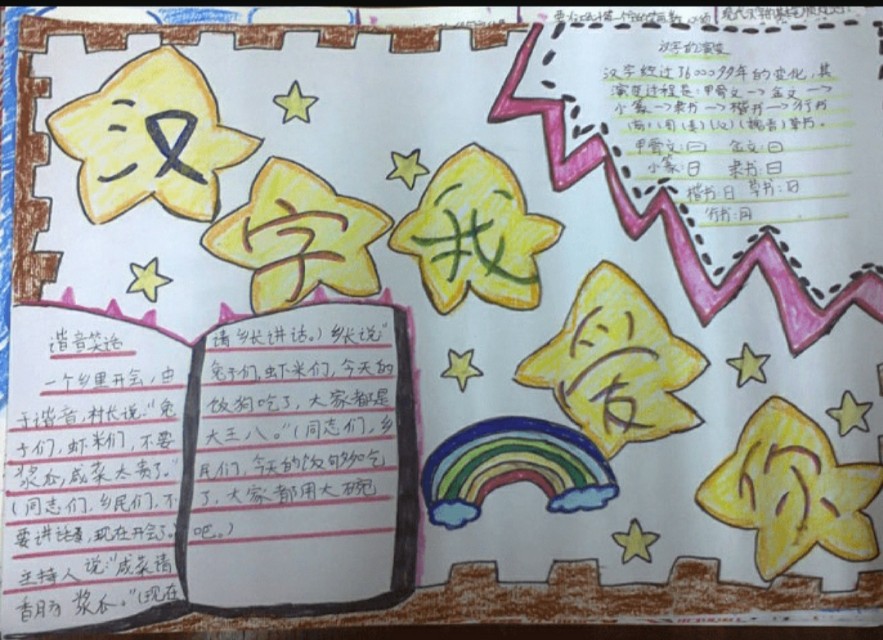 汉字我爱你
汉字的演变
汉字经过了6000多年的变化,其
演变过程是:甲骨文→金文→
小篆→隶书→楷书→行书
(商) (周) (秦) (汉) (魏晋) 草书。
甲骨文:日 金文:日
小篆:日 隶书:日
楷书:日 草书:日
行书:日
谐音笑话
一个乡里开会,由
于谐音,村长说:“兔
子们,虾米们,不要
浆瓜,咸菜太贵了。”
(同志们,乡民们,不
要讲话,现在开会了。
主持人说:“咸菜请
香肠 浆瓜。”(现在
请乡长讲话。)乡长说“
兔子们,虾米们,今天的
饭狗吃了,大家都是
大王八。”(同志们,乡
民们,今天的饭够吃
了,大家都用大碗
吧。)